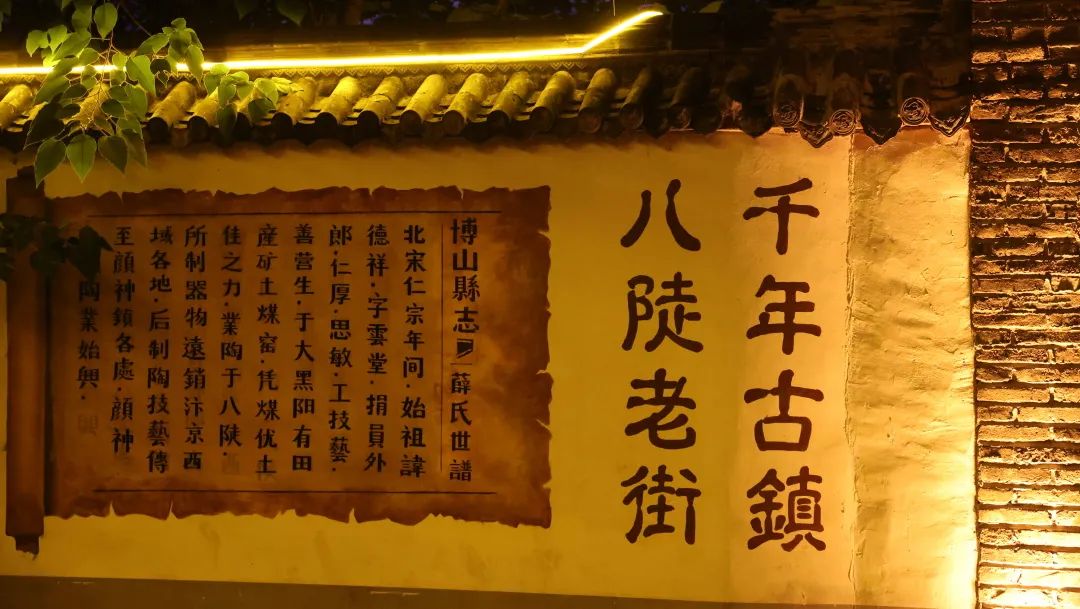 千年古鎮
八陡老街
博山縣志 薛氏世譜
北宋仁宗年间·始祖諱
德祥·字雲堂·捐員外
郎·仁厚·思敏·工技藝·
善营生·于大黑阳有田
産矿土煤窑·凭煤优土
佳之力·業陶于八陡·
所制器物遠銷汴京西
域各地·后制陶技藝傳
至顔神鎮各處·顔神
陶業始興·